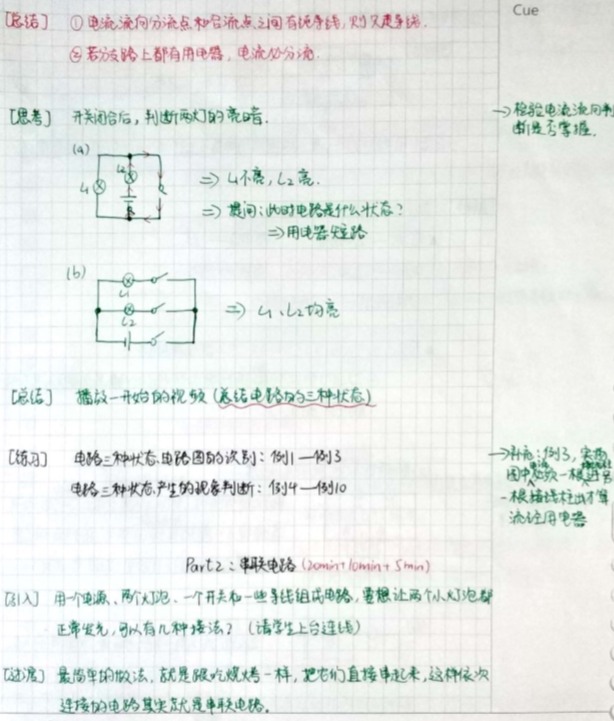 Cue
[总结] ① 电流流向分流点和合流点之间有纯导线，则只走导线.
② 若分支路上都有用电器，电流必分流.
[思考] 开关闭合后，判断两灯的亮暗.
→检验电流流向判
断是否掌握.
(a)
L2
L1
⇒ L1不亮，L2亮.
⇒ 提问：此时电路是什么状态？
⇒用电器短路
(b)
L1
L2
⇒ L1、L2均亮
[总结] 播放一开始的视频 (总结电路的三种状态)
[练习] 电路三种状态、电路图的识别：例1—例3
电路三种状态、产生的现象判断：例4—例10
→补充：例3，实物
图中必须一根进另
一根接线柱出才算
流经用电器
Part2：串联电路 (20min+10min+5min)
[引入] 用一个电源、两个灯泡、一个开关和一些导线组成电路，要想让两个小灯泡都
正常发光，可以有几种接法？ (请学生上台连线)
[过渡] 最简单的做法，就是跟吃烧烤一样，把它们直接串起来，这样依次
连接的电路其实就是串联电路。